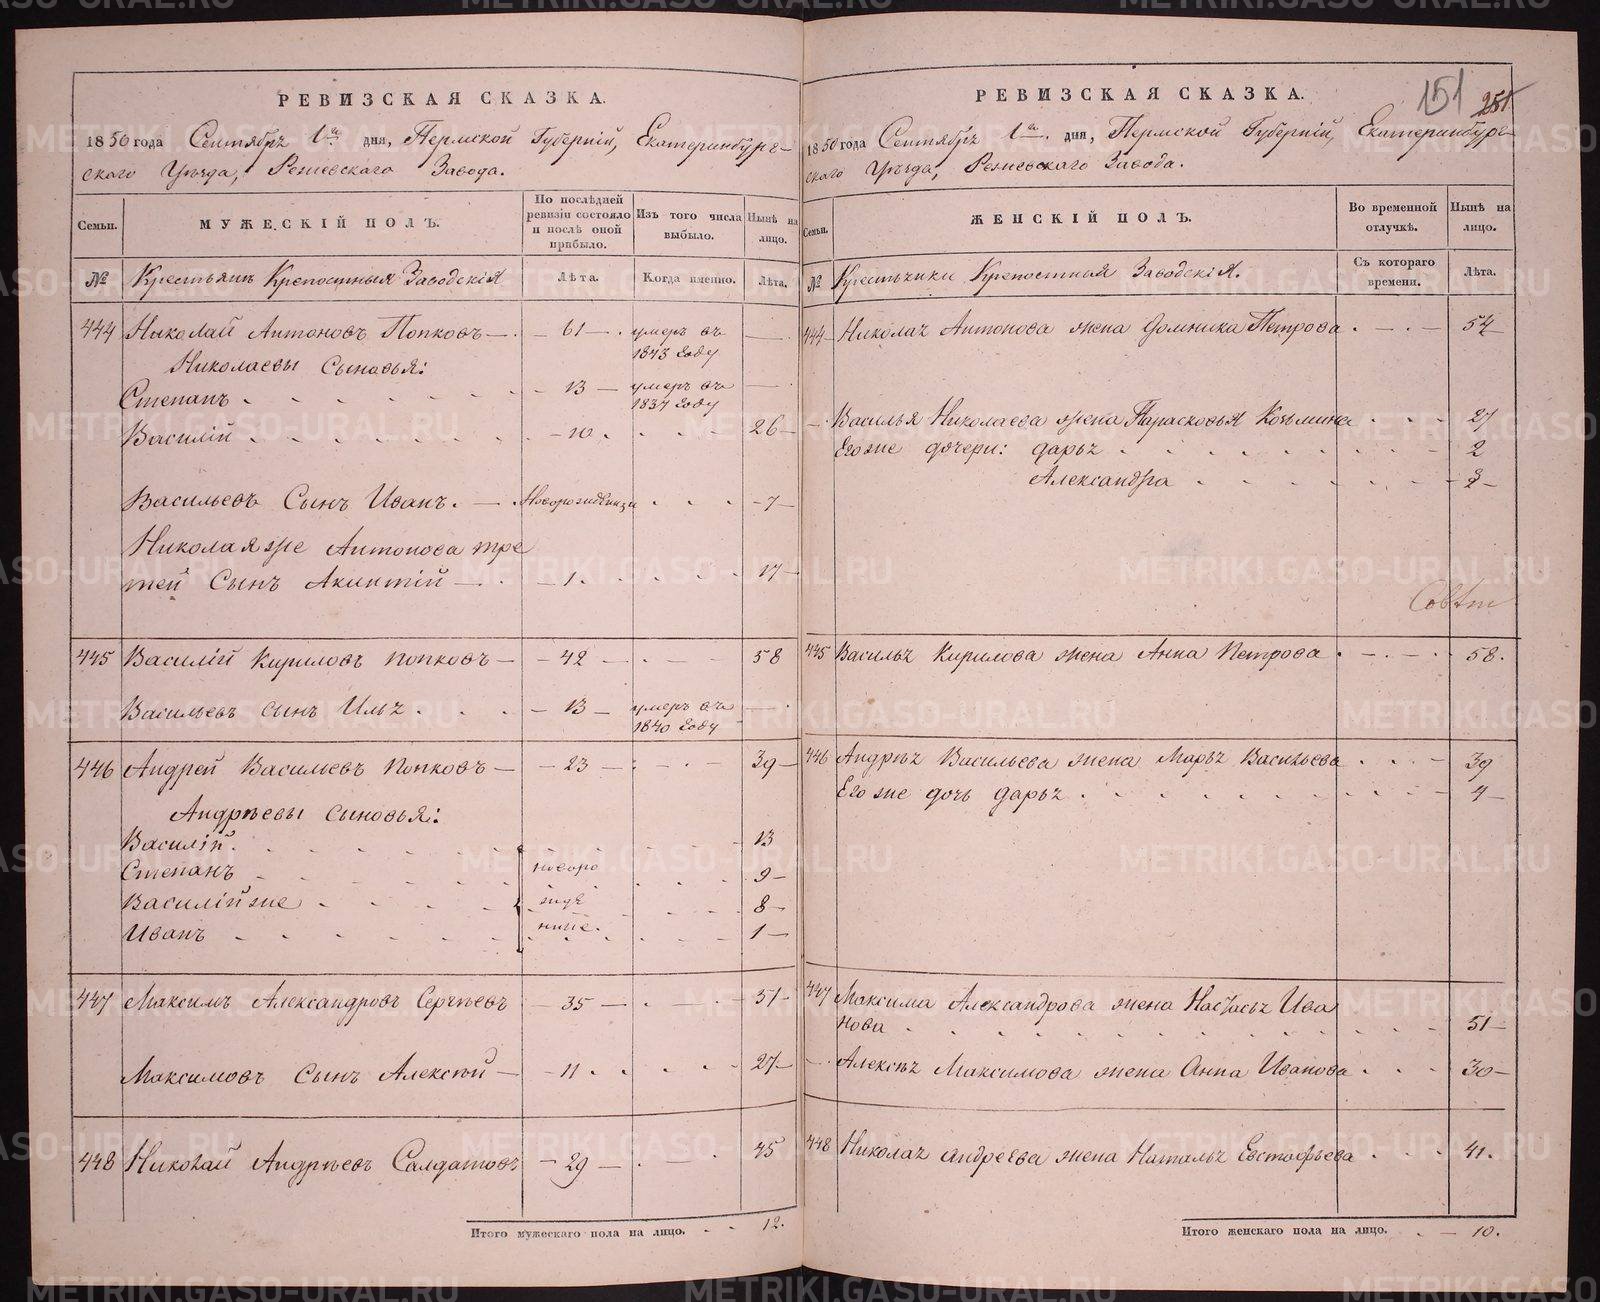 РЕВИЗСКАЯ СКАЗКА.
1850 года Сентября 1го дня, Пермской Губерніи, Екатеринбург-
скаго Уѣзда, Режевскаго Завода.
Семьи.
МУЖЕСКІЙ ПОЛЪ.
По послѣдней ревизіи состояло и послѣ оной прибыло.
Изъ того числа выбыло.
Нынѣ на лицо.
№ Крестьянъ Крепостныя Заводскія Лѣта. Когда именно. Лѣта.
444 Николай Антоновъ Попковъ — 61 — умеръ въ 1843 году
Николаевы Сыновья:
Степанъ — 13 — умеръ въ 1837 году
Василій — 10 26
Васильевъ Сынъ Иванъ. — Новорожденны 7
Николая же Антонова тре
тей Сынъ Акинтій — 1 17
445 Василій Кириловъ Попковъ — 42 — 58
Васильевъ сынъ Илья — 13 — умеръ въ 1840 году
446 Андрей Васильевъ Попковъ — 23 — 39
Андрѣевы сыновья:
Василій 13
Степанъ новоро 9
Василій же жде 8
Иванъ ніие. 1
447 Максимъ Александровъ Сергѣевъ 35 — 51
Максимовъ Сынъ Алексѣй — 11 27
448 Николай Андрѣевъ Салдатовъ — 29 — 45
Итого мужескаго пола на лицо. 12.
151 251
РЕВИЗСКАЯ СКАЗКА.
1850 года Сентября 1го дня, Пермской Губерніи, Екатеринбург-
скаго Уѣзда, Режевскаго Завода.
Семьи.
ЖЕНСКІЙ ПОЛЪ.
Во временной отлучкѣ.
Нынѣ на лицо.
№ Крестьянки Крепостная Заводскія. Съ котораго времени. Лѣта.
444 Николая Антонова жена Домника Петрова 54
Василья Николаева жена Парасковья Козьмина 27
Его же дочери: Дарья 2
Александра
445 Василья Кирилова жена Анна Петрова 58.
446 Андрѣя Васильева жена Марья Васильева 39
Его же дочь Дарья 4
447 Максима Александрова жена Настасья Ива
нова 51
Алексѣя Максимова жена Анна Иванова 30
448 Николая Андреева жена Наталья Евстафьева 41.
Итого женскаго пола на лицо. 10.
METRIKI.GASO-URAL.RU